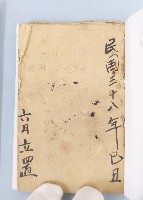 民國三十八年己丑
六月立置